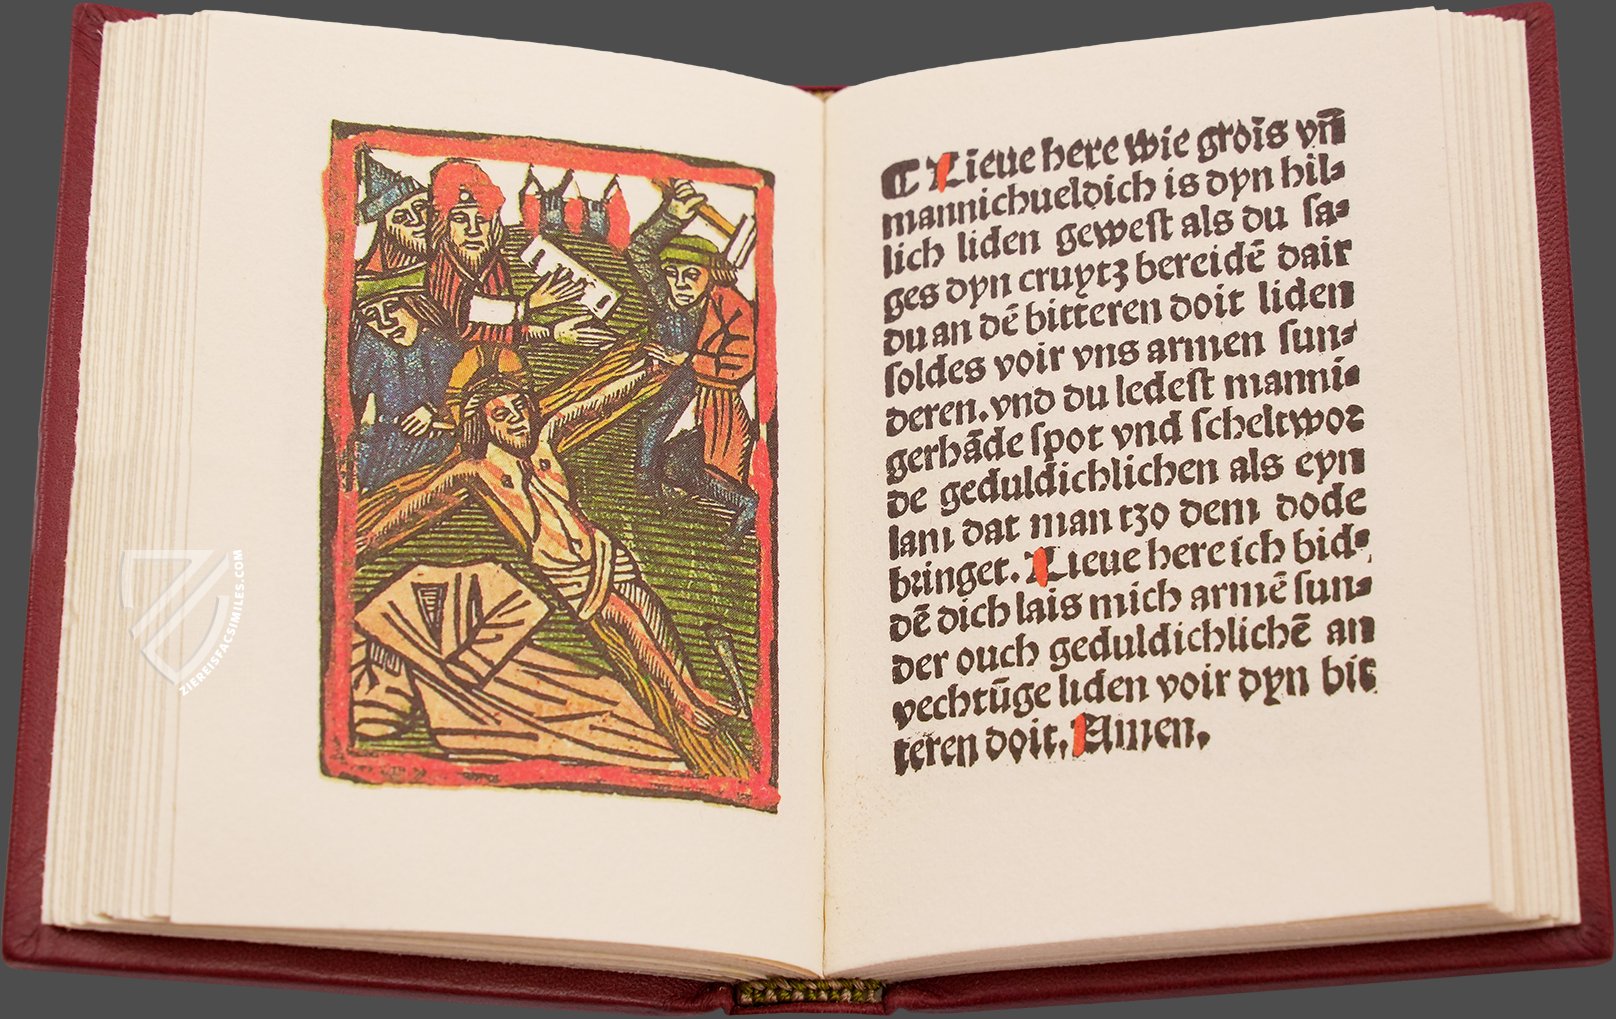 ZIEREISFACSIMILES.COM
⸿ Lieue here wie grois vñ
mannichueldich is dyn hil⸗
lich liden gewest als du sa⸗
ges dyn cruytz bereidē dair
du an dē bitteren doit liden
soldes voir vns armen sun⸗
deren. vnd du ledest manni⸗
gerhāde spot vnd scheltwor
de geduldichlichen als eyn
lam dat man tzo dem dode
bringet. Lieue here ich bid⸗
dē dich lais mich armē sun⸗
der ouch geduldichlichē an
vechtūge liden voir dyn bit
teren doit. Amen.